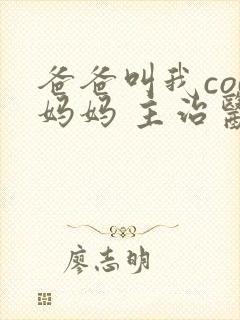 爸爸叫我co
妈妈 主治醫
廖志明